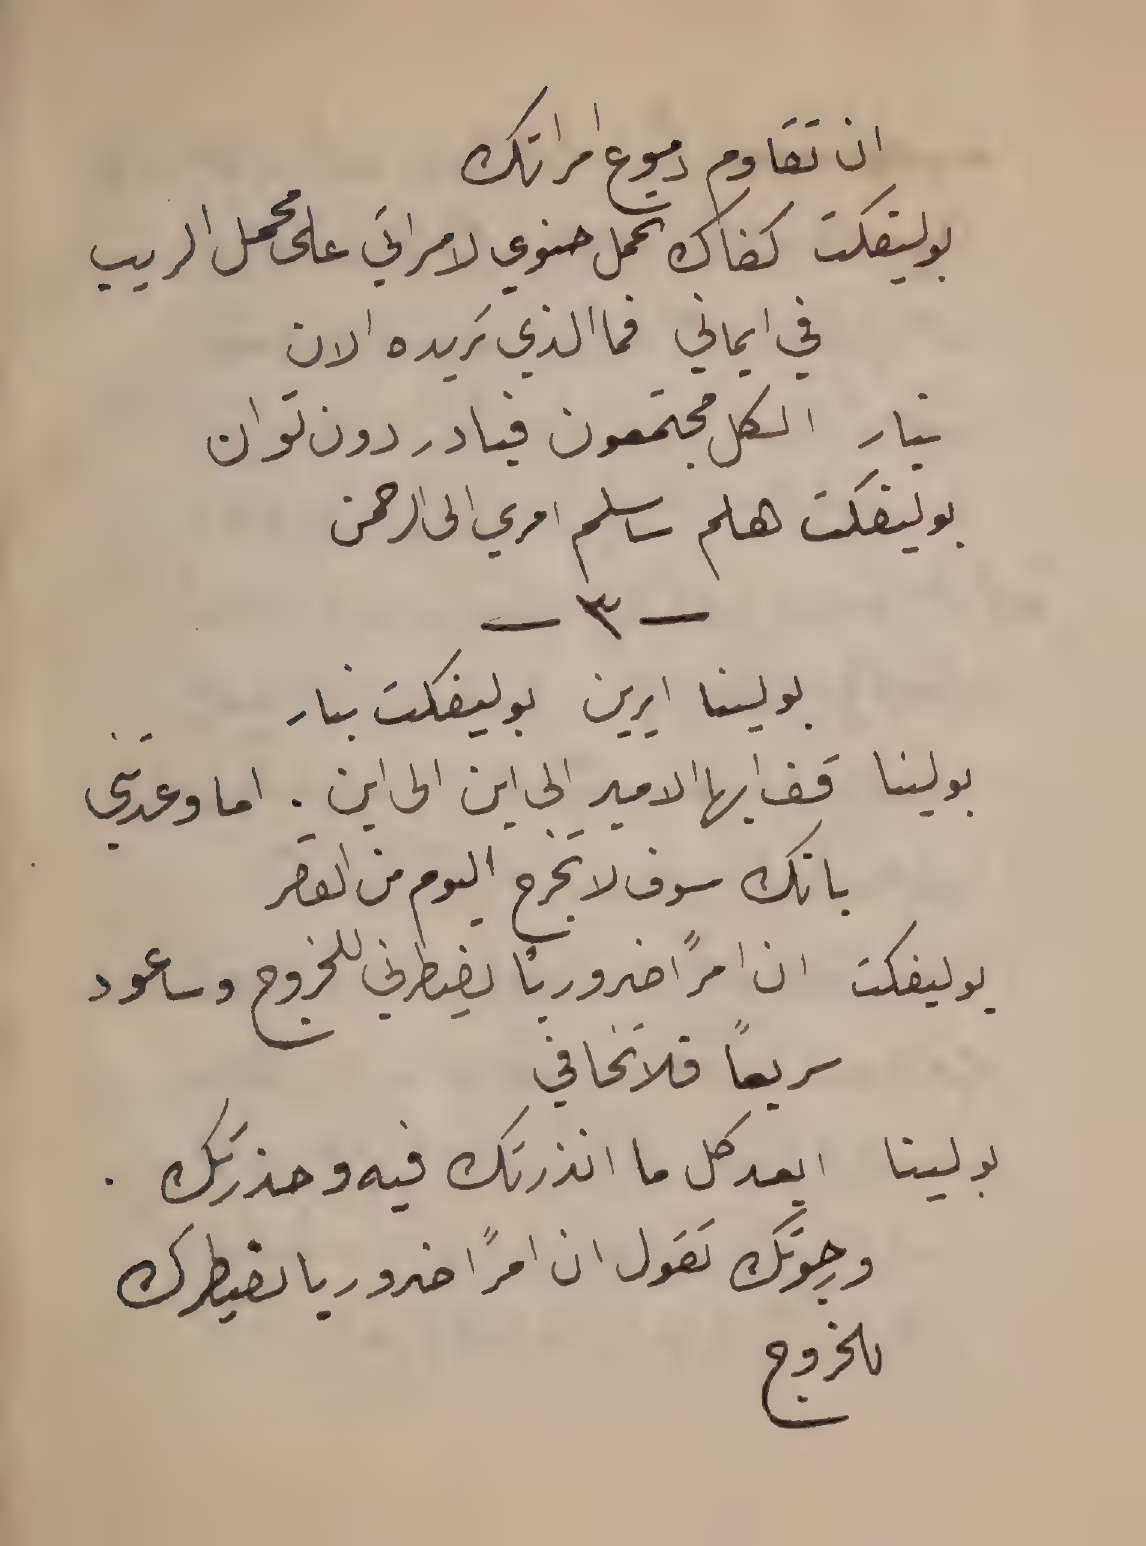 ان تَقَاوم دموع امراتك
بوليفكت كفاك تحمل حنوي لامراتي على محمل الريب
في ايماني فما الذي تريده الان
نيار الكل مجتمعون فبادر دون توان
بوليفكت هلم ساسلم امري الى الرحمن
— ٣ —
بولينا ايرين بوليفكت نيار
بولينا قف ايها الامير الى اين الى اين . اما وعدتني
بانك سوف لا تخرج اليوم من القصر
بوليفكت ان امرًا ضروريًا يضطرني للخروج وساعود
سريعًا فلا تخافي
بولينا ابعد كل ما انذرتك فيه وحذرتك .
ورجوتك تقول ان امرًا ضروريا يضطرك
للخروج